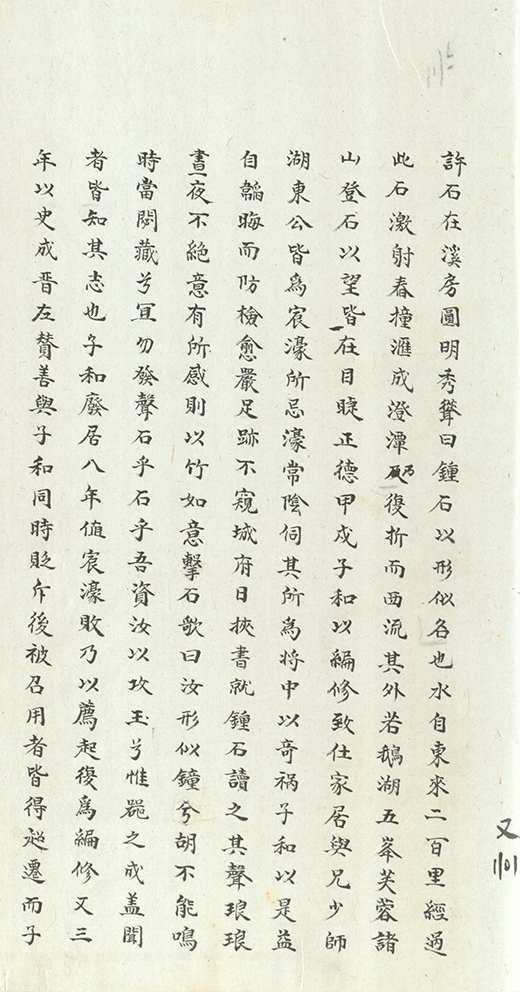 許石在溪房圓明秀聳曰鍾石以形似名也水自東來二百里經過
此石激射舂撞滙成澄潭乃復折而西流其外若鵝湖五峯芙蓉諸
山登石以望皆在目睫正德甲戍子和以編修致仕家居與兄少師
湖東公皆為宸濠所忌濠常陰伺其所為将中以竒禍子和以是益
自韜晦而防檢愈嚴足跡不窺城府日挾書就鍾石讀之其聲琅琅
晝夜不絶意有所感則以竹如意擊石歌曰汝形似鐘兮胡不能鳴
時當閟藏兮冝勿發聲石乎石乎吾資汝以攻玉兮惟器之成盖聞
者皆知其志也子和廢居八年值宸濠敗乃以薦起復為編修又三
年以史成晋左賛善與子和同時貶斥後被召用者皆得超遷而子